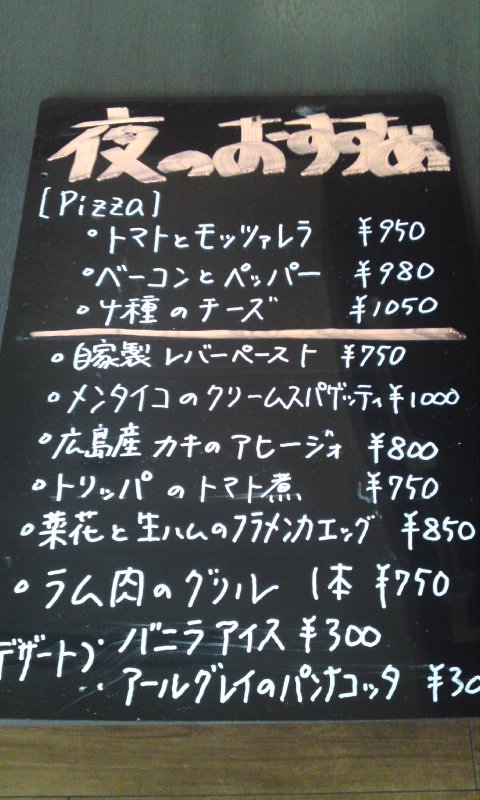 夜のおすすめ
[Pizza]
・トマトとモッツァレラ ¥950
・ベーコンとペッパー ¥980
・4種のチーズ ¥1050
・自家製レバーペースト ¥750
・メンタイコのクリームスパゲッティ ¥1000
・広島産カキのアヒージョ ¥800
・トリッパのトマト煮 ¥750
・菜花と生ハムのフラメンカエッグ ¥850
・ラム肉のグリル 1本 ¥750
デザート) バニラアイス ¥300
アールグレイのパンナコッタ ¥30